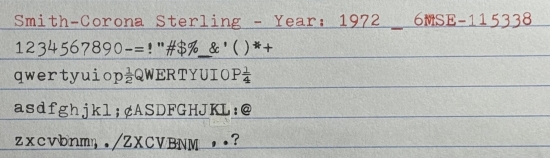 Smith-Corona Sterling - Year: 1972 _ 6MSE-115338
1234567890-=!"#$%_&'()*+
qwertyuiop½QWERTYUIOP¼
asdfghjkl;¢ASDFGHJKL:@
zxcvbnm,./ZXCVBNM ,.?